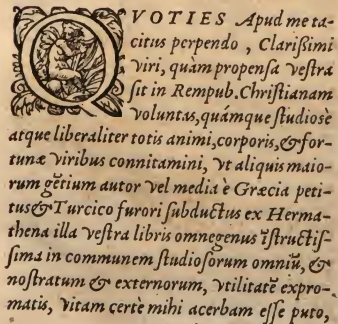 QVOTIES Apud me ta-
citus perpendo, Clarißimi
viri, quàm propensa vestra
sit in Rempub. Christianam
voluntas, quámque studiosè
atque liberaliter totis animi, corporis, & for-
tunæ viribus connitamini, vt aliquis maio-
rum gētium autor vel media è Græcia peti-
tus & Turcico furori subductus ex Herma-
thena illa vestra libris omnegenus īstructis-
sima in communem studiosorum omniū, &
nostratum & externorum, vtilitatē expro-
matis, vitam certè mihi acerbam esse puto,